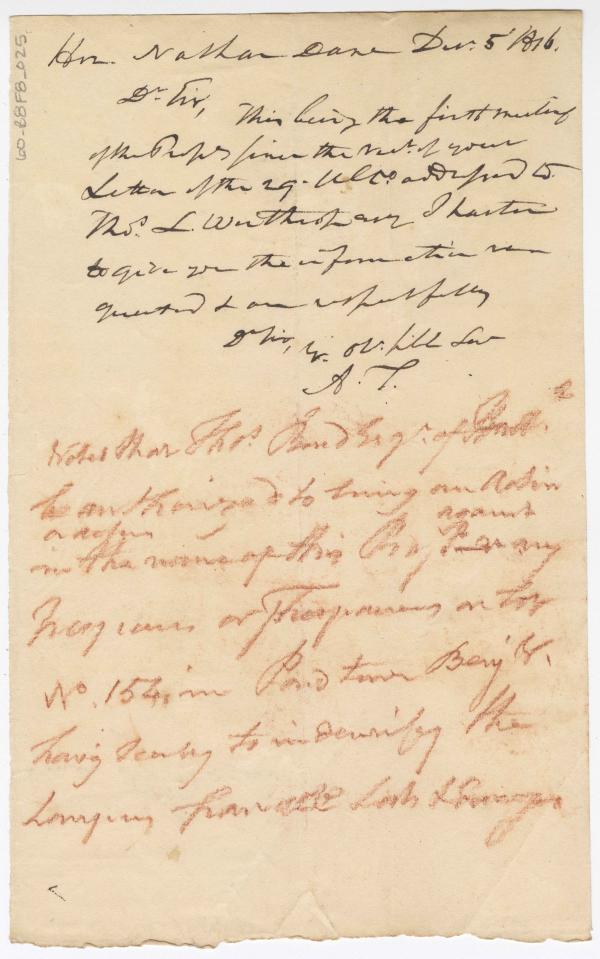 60-EBFB_025
Hon. Nathan Dane Decr. 5th 1816.
Dr Sir,
This being the first meeting
of the Proprs since the rect. of your
Letter of the 29. Ulto. addressed to
Thos. L. Winthrop esqr I hasten
to give you the information re-
quested & am respectfully
Dr Sir, yr. obt. hble Ser
A. T.
Voted that Thos. Esqr. of
be authorized to bring an Action
or actions against
in the name of this any
Trespasses or Trespassers on Lot
No. 154, in town
having to indemnify the
Company from all Costs &